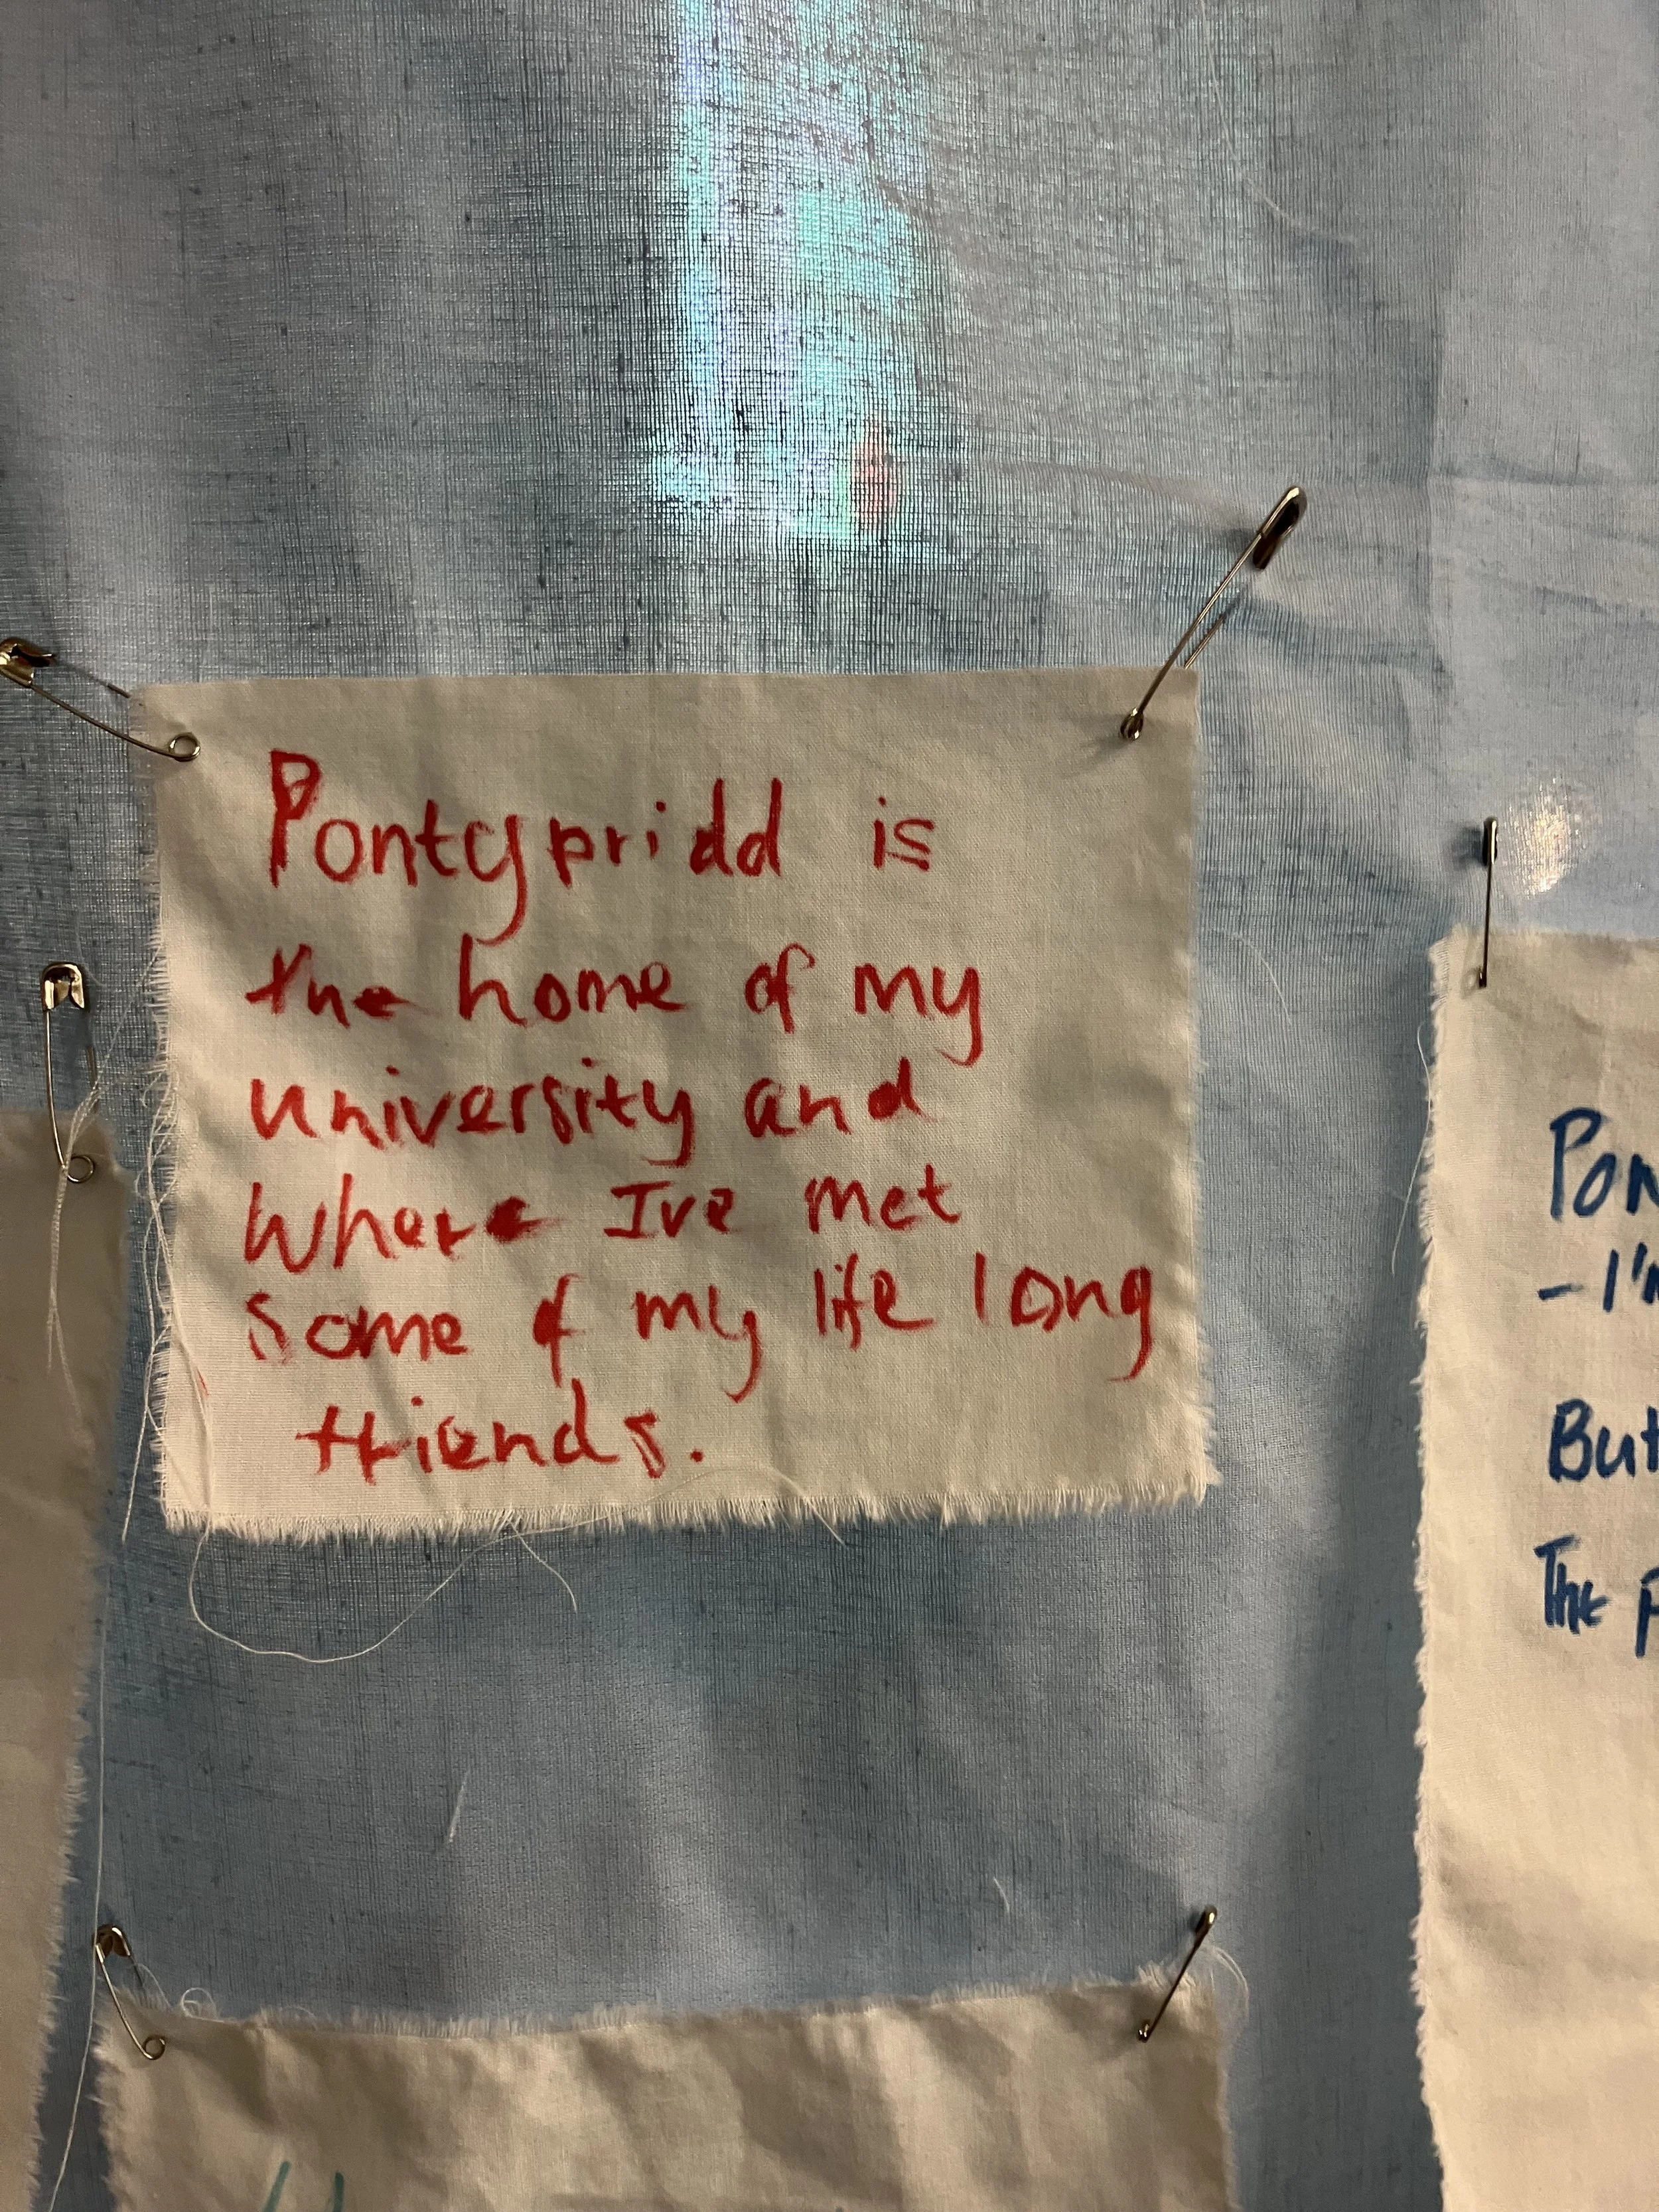 Pontypridd is
the home of my
university and
where Ive met
some of my life long
friends.
- I'm
But
The